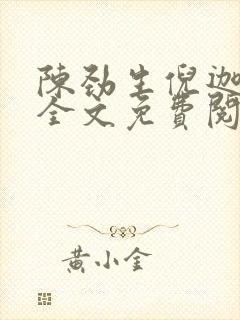 陳勁生倪迦
全文免費閱
黃小金